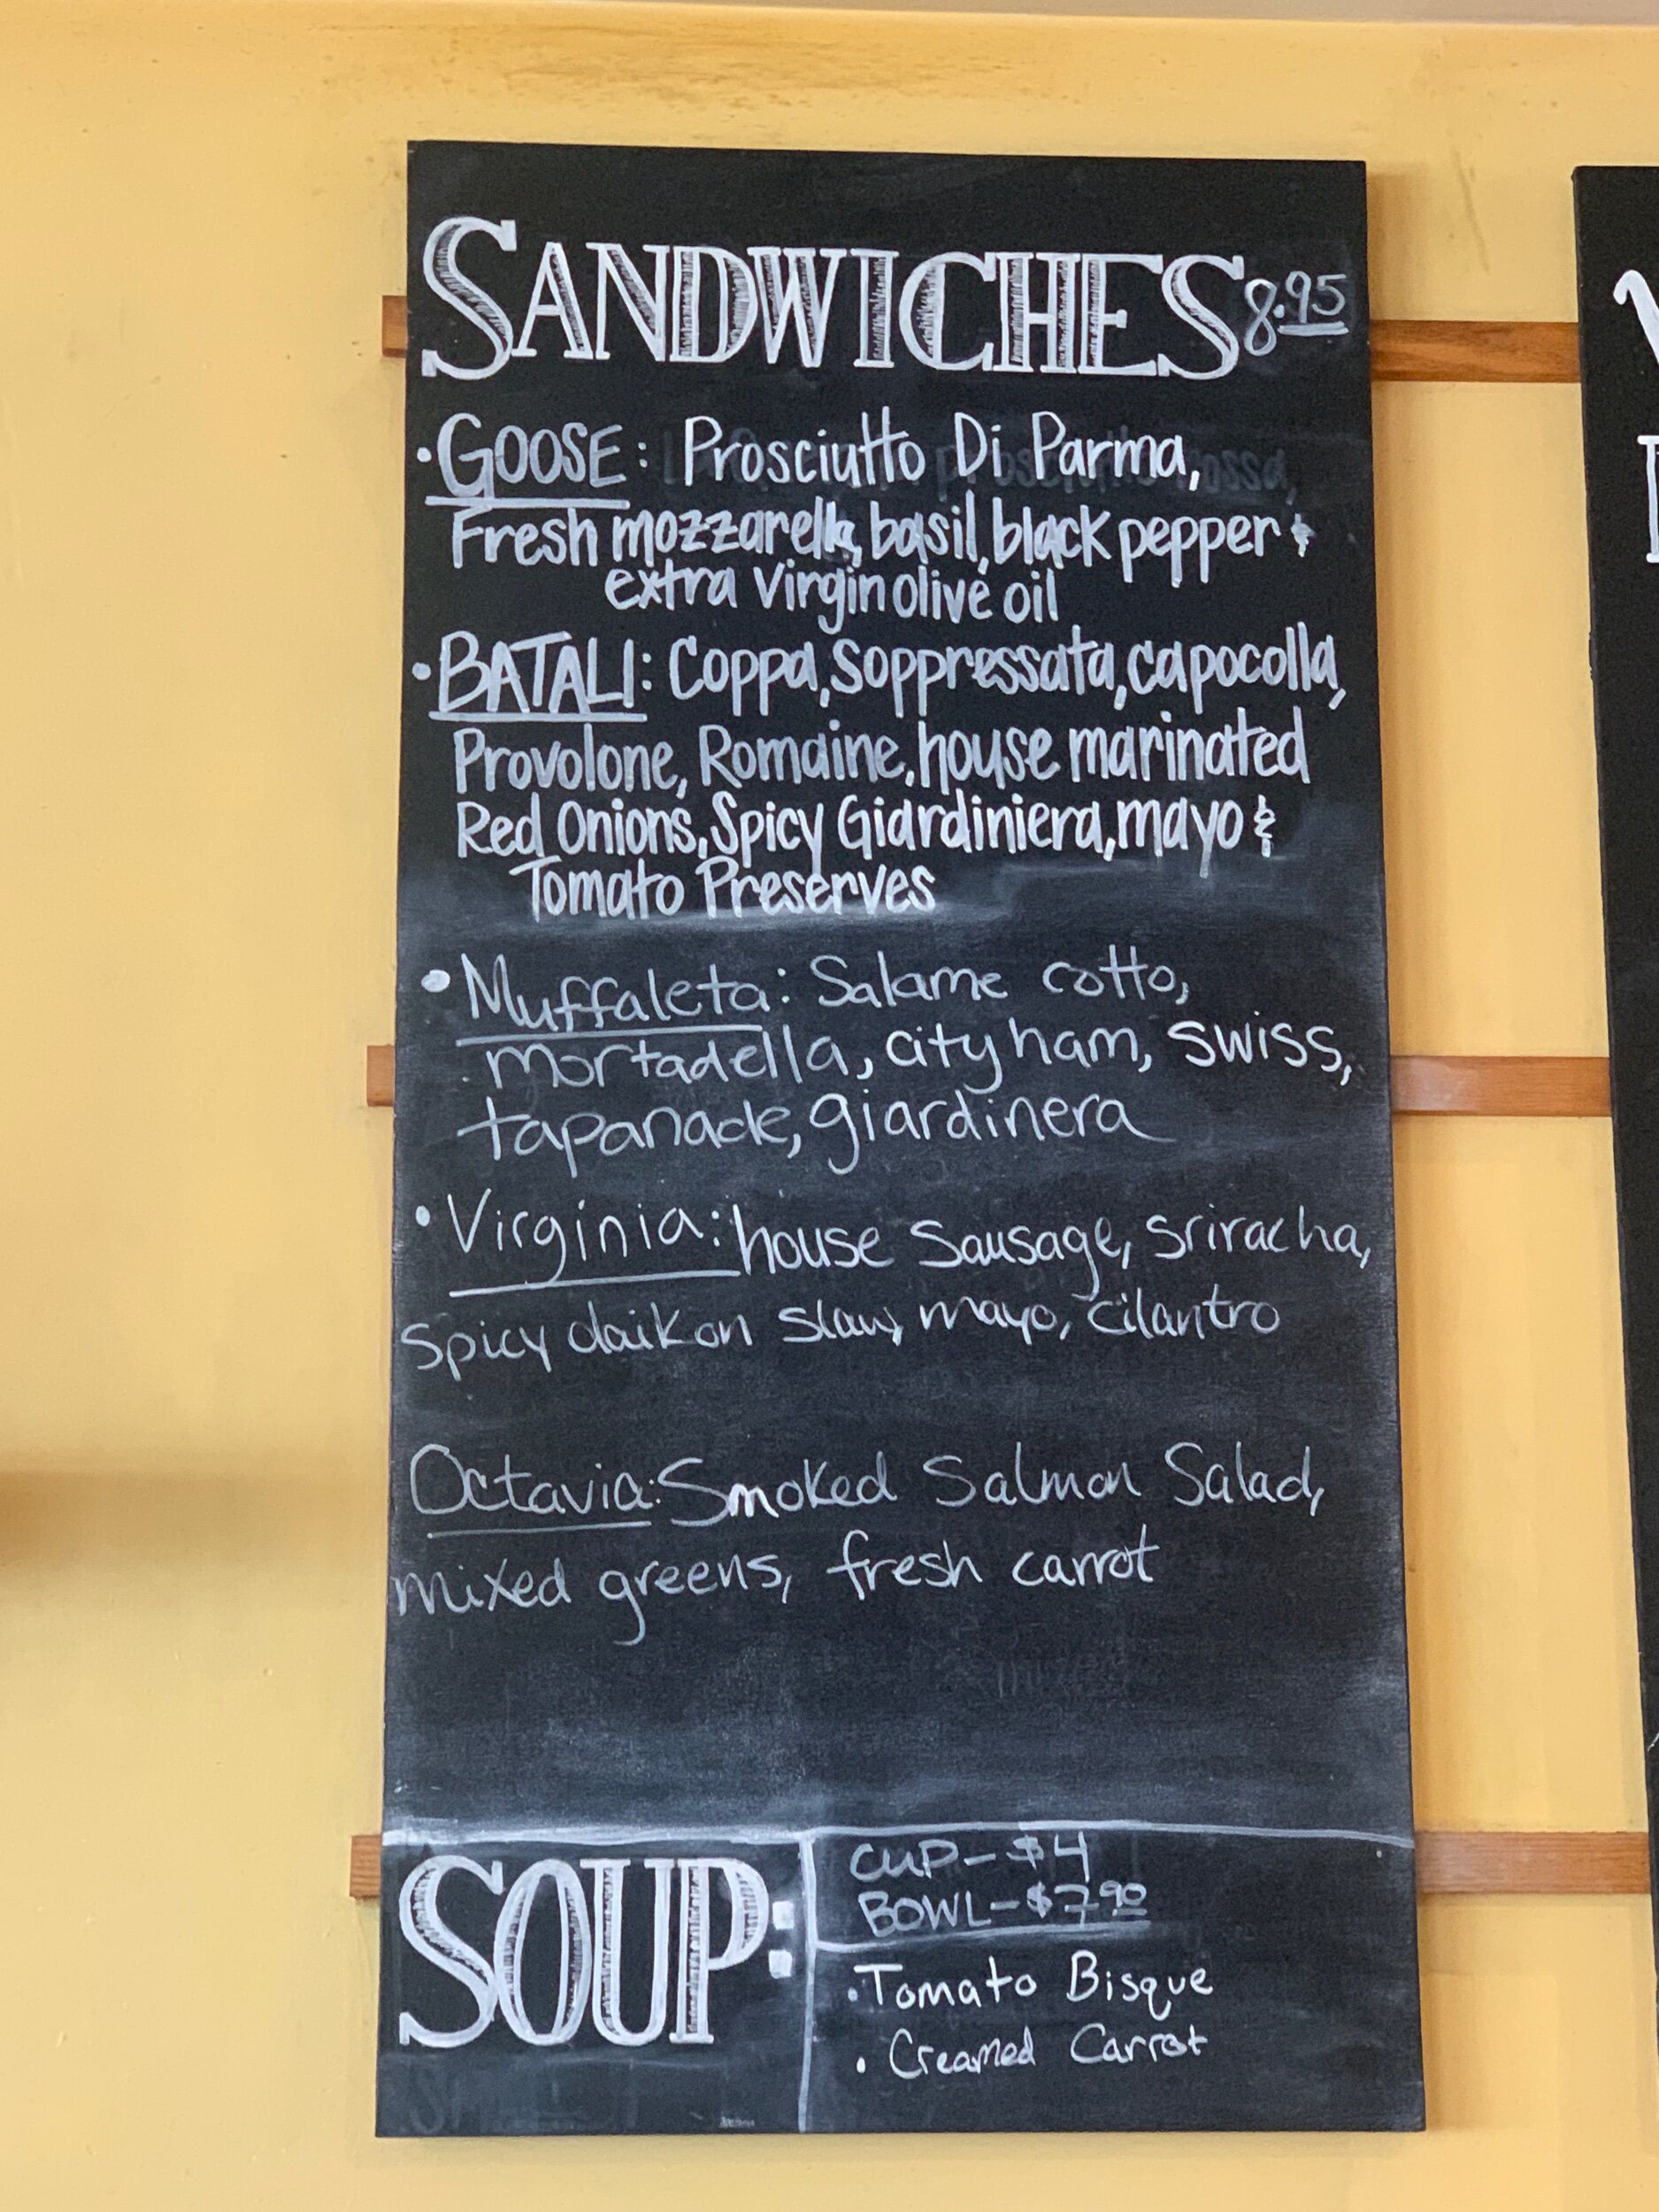 SANDWICHES 8.95
· GOOSE: Prosciutto Di Parma,
Fresh mozzarella, basil, black pepper &
extra virgin olive oil
· BATALI: Coppa, Soppressata, capocolla,
Provolone, Romaine, house marinated
Red Onions, Spicy Giardiniera, mayo &
Tomato Preserves
· Muffaleta: Salame cotto,
mortadella, city ham, swiss,
tapanade, giardinera
· Virginia: house Sausage, sriracha,
spicy daikon slaw, mayo, cilantro
Octavia: Smoked Salmon Salad,
mixed greens, fresh carrot
SOUP:
CUP - $4
BOWL - $7.90
· Tomato Bisque
· Creamed Carrot